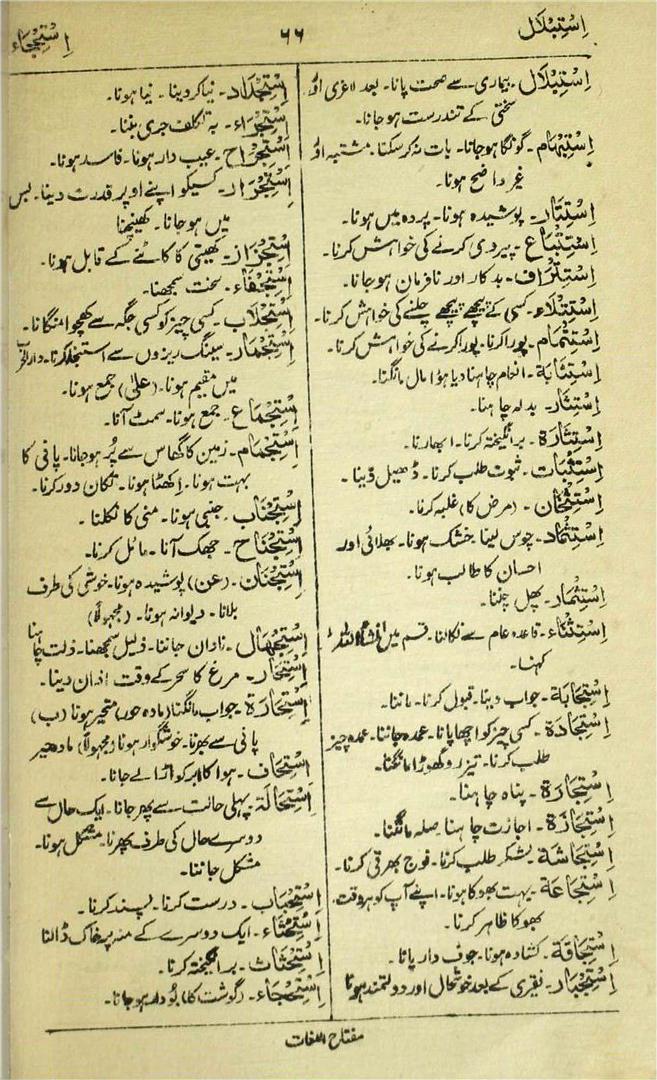 اِسْتِبْلَال
۶۶
اِسْتِحْجَاء
اِسْتِبْلَال۔ بیماری۔ سے صحت پانا۔ بعد لاغری اور
سختی کے تندرست ہوجانا۔
اِسْتِبْهَام۔ گونگا ہوجانا۔ بات نہ کرسکنا۔ مشتبہ اور
غیر واضح ہونا۔
اِسْتِتَار۔ پوشیدہ ہونا۔ پردہ میں ہونا۔
اِسْتِتْبَاع۔ پیروی کرنے کی خواہش کرنا۔
اِسْتِتْرَاف۔ بدکار اور نافرمان ہوجانا۔
اِسْتِتْلَاء۔ کسی کے پیچھے پیچھے چلنے کی خواہش کرنا۔
اِسْتِتْمَام۔ پورا کرنا۔ پورا کرنے کی خواہش کرنا۔
اِسْتِثَابَة۔ انعام چاہنا دیا ہوا مال مانگنا۔
اِسْتِثَار۔ بدلہ چاہنا۔
اِسْتِثَارَة۔ برانگیختہ کرنا۔ ابھارنا۔
اِسْتِثْبَات۔ ثبوت طلب کرنا۔ ڈھیل دینا۔
اِسْتِثْخَان۔ (مرض کا) غلبہ کرنا۔
اِسْتِثْمَاد۔ چوس لینا۔ خشک ہونا۔ بھلائی اور
احسان کا طالب ہونا۔
اِسْتِثْمَار۔ پھل چننا۔
اِسْتِثْنَاء۔ قاعدہ عام سے نکالنا۔ قسم میں انشاءاللہ
کہنا۔
اِسْتِجَابَة۔ جواب دینا۔ قبول کرنا۔ ماننا۔
اِسْتِجَادَة۔ کسی چیز کو اچھا پانا۔ عمدہ جاننا۔ عمدہ چیز
طلب کرنا۔ تیزرو گھوڑا مانگنا۔
اِسْتِجَارَة۔ پناہ چاہنا۔
اِسْتِجَازَة۔ اجازت چاہنا۔ صلہ مانگنا۔
اِسْتِجَاشَة۔ لشکر طلب کرنا۔ فوج بھرتی کرنا۔
اِسْتِجَاعَة۔ بہت بھوکا ہونا۔ اپنے آپ کو ہر وقت
بھوکا ظاہر کرنا۔
اِسْتِجَافَة۔ کشادہ ہونا۔ جوف دار پانا۔
اِسْتِجْبَار۔ فقیری کے بعد خوشحال اور دولتمند ہونا
اِسْتِجْدَاد۔ نیا کر دینا۔ نیا ہونا۔
اِسْتِجْرَاء۔ بہ تکلف جری بننا۔
اِسْتِجْرَاح۔ عیب دار ہونا۔ فاسد ہونا۔
اِسْتِجْرَار۔ کسیکو اپنے اوپر قدرت دینا۔ بس
میں ہوجانا۔ کھینچنا
اِسْتِجْزَاز۔ کھیتی کا کاٹنے کے قابل ہونا۔
اِسْتِجْفَاء۔ سخت سمجھنا۔
اِسْتِجْلَاب۔ کسی چیز کو کسی جگہ سے کھچوا منگانا۔
اِسْتِجْمَار۔ سینگ ریزوں سے استنجا کرنا۔ دارالحرب
میں مقیم ہونا۔ (علیٰ) جمع ہونا۔
اِسْتِجْمَاع۔ جمع ہونا۔ سمٹ آنا۔
اِسْتِجْمَام۔ زمین کا گھاس سے پُر ہوجانا۔ پانی کا
بہت ہونا۔ اِکھٹا ہونا۔ تکان دور کرنا۔
اِسْتِجْنَاب۔ جنبی ہونا۔ منی کا نکلنا۔
اِسْتِجْنَاح۔ جھک آنا۔ مائل کرنا۔
اِسْتِجْنَان۔ (عن) پوشیدہ ہونا۔ خوشی کی طرف
بلانا۔ دیوانہ ہونا۔ (مجہولاً)
اِسْتِجْهَال۔ نادان جاننا۔ ذلیل سمجھنا۔ ذلت چاہنا
اِسْتِحَار۔ مرغ کا سحر کے وقت اذان دینا۔
اِسْتِحَارَة۔ جواب مانگنا (مادہ حور) متحیر ہونا (ب)
پانی سے بھرنا۔ خوشگوار ہونا (مجہولاً) مادہ حیر
اِسْتِحَاف۔ ہوا کا ابر کو اڑا لے جانا۔
اِسْتِحَالَة۔ پہلی حالت سے پھر جانا۔ ایک حال سے
دوسرے حال کی طرف پھرنا۔ مشکل ہونا۔
مشکل جاننا۔
اِسْتِحْبَاب۔ درست کرنا۔ پسند کرنا۔
اِسْتِحْثَاء۔ ایک دوسرے کے منہ پر خاک ڈالنا
اِسْتِحْثَاث۔ برانگیختہ کرنا۔
اِسْتِحْجَاء۔ (گوشت کا) بُودار ہوجانا۔
مفتاح اللغات